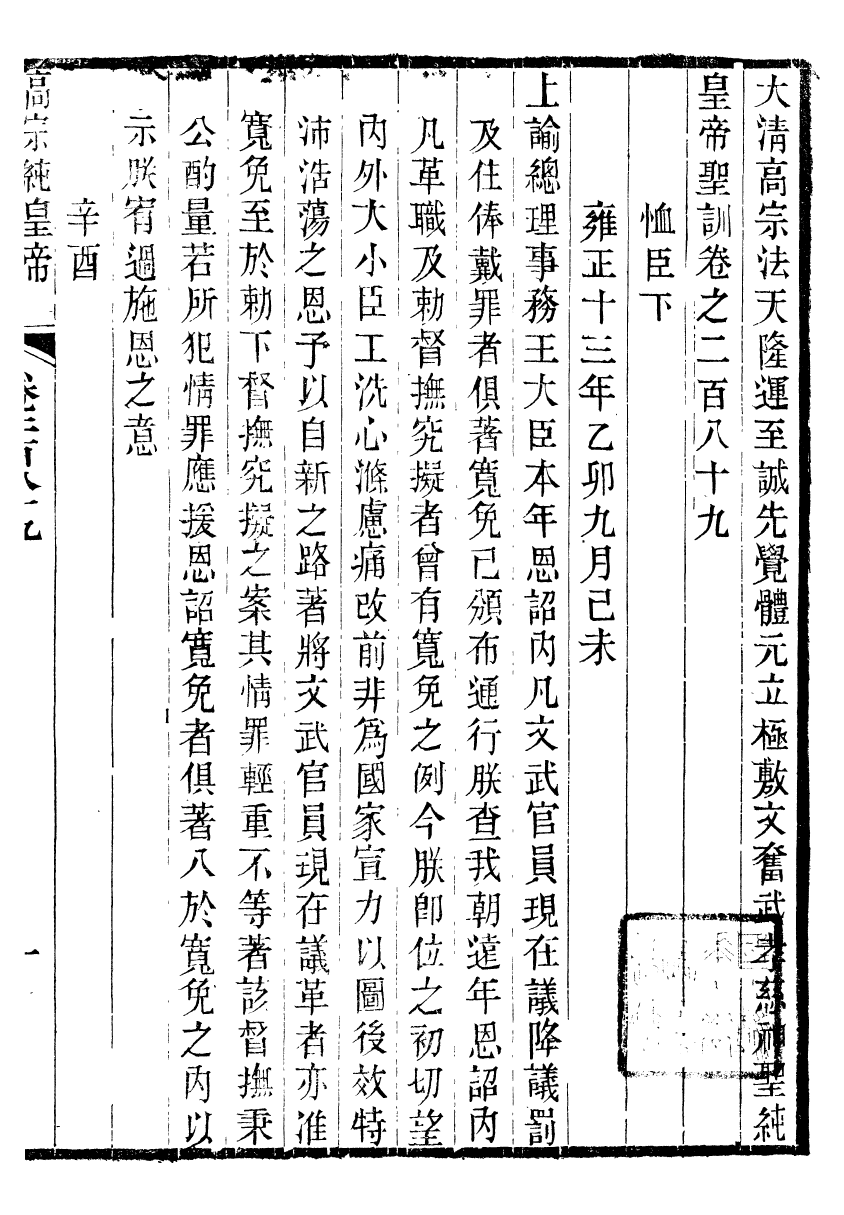 大清高宗法天隆運至誠先覺體元立極敷文奮武孝慈神聖純
皇帝聖訓卷之二百八十九
恤臣下
雍正十三年乙卯九月己未
上諭總理事務王大臣本年恩詔內凡文武官員現在議降議罰
及住俸戴罪者俱著寬免已頒布通行朕查我朝遠年恩詔內
凡革職及勅督撫究擬者曾有寬免之例今朕卽位之初切望
內外大小臣工洗心滌慮痛改前非爲國家宣力以圖後效特
沛浩蕩之恩予以自新之路著將文武官員現在議革者亦准
寬免至於勅下督撫究擬之案其情罪輕重不等著該督撫秉
公酌量若所犯情罪應援恩詔寬免者俱著入於寬免之內以
示朕宥過施恩之意
辛酉
高宗純皇帝 卷二百八十九 一